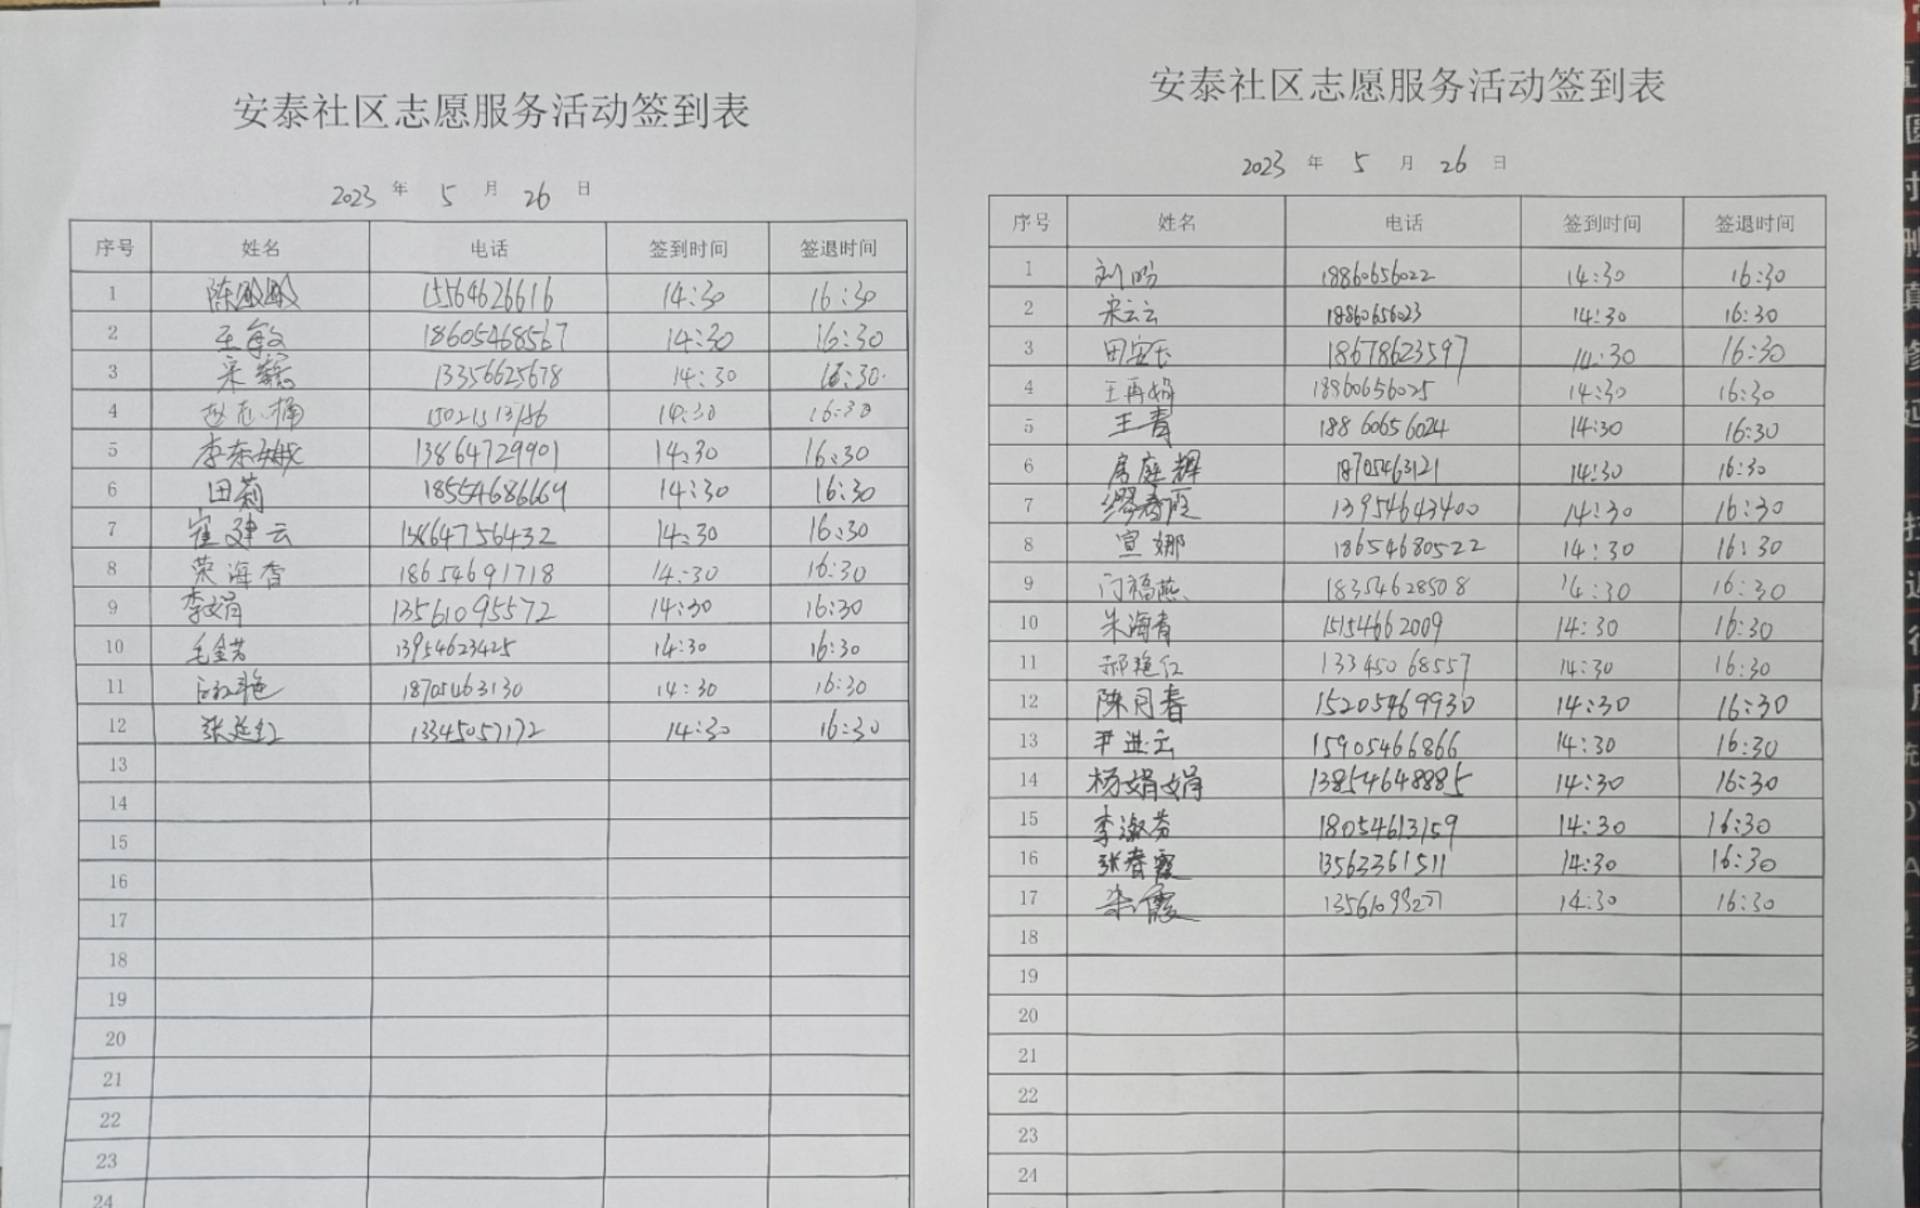 安泰社区志愿服务活动签到表
2023 年 5 月 26 日
序号 姓名 电话 签到时间 签退时间
1 陈 15564626616 14:30 16:30
2 王敏 18605468567 14:30 16:30
3 宋 13356625678 14:30 16:30
4 赵志楠 14:30 16:30
5 李东娥 13864729901 14:30 16:30
6 田莉 18554686669 14:30 16:30
7 崔建云 14:30 16:30
8 荣海香 18654691718 14:30 16:30
9 李娟 13561095572 14:30 16:30
10 毛金芸 13954623425 14:30 16:30
11 18705463130 14:30 16:30
12 张延红 13345057172 14:30 16:30
13
14
15
16
17
18
19
20
21
22
23
24
安泰社区志愿服务活动签到表
2023 年 5 月 26 日
序号 姓名 电话 签到时间 签退时间
1 刘盼 18860656022 14:30 16:30
2 宋云云 18860656023 14:30 16:30
3 田安玉 18678623597 14:30 16:30
4 王再娟 18860656025 14:30 16:30
5 王青 18860656024 14:30 16:30
6 房庭辉 18705463121 14:30 16:30
7 缪春霞 13954643400 14:30 16:30
8 宣娜 18654680522 14:30 16:30
9 门福燕 18354628508 14:30 16:30
10 朱海青 15154662009 14:30 16:30
11 郝艳红 13345068557 14:30 16:30
12 陈同春 15205469930 14:30 16:30
13 尹进云 15905466866 14:30 16:30
14 杨娟娟 13854648885 14:30 16:30
15 李淑芬 18054613159 14:30 16:30
16 张春霞 13562361511 14:30 16:30
17 霞 14:30 16:30
18
19
20
21
22
23
24